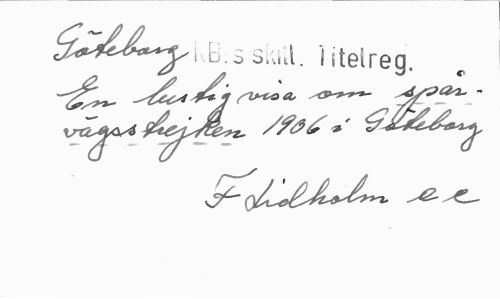 Göteborg KB:s skill. Titelreg.
En lustig visa om spår-
vägsstrejken 1906 i Göteborg
F Lidholm e c